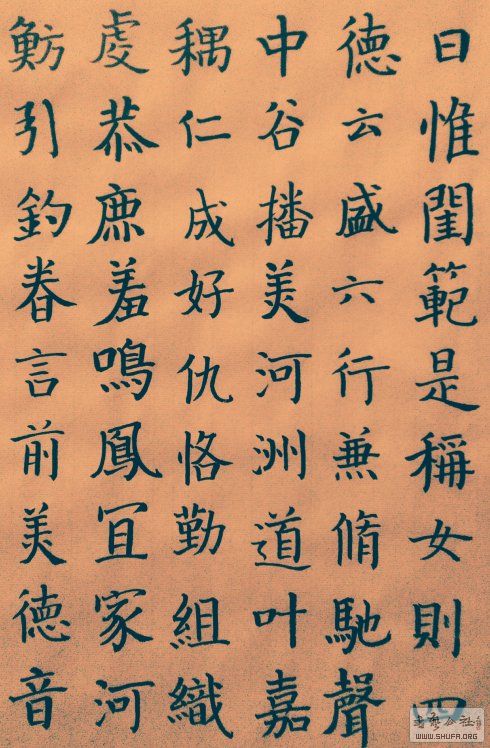 曰惟閨範是稱女則四
徳云盛六行兼脩馳聲
中谷播美河洲道叶嘉
耦仁成好仇恪勤組織
虔恭庶羞鳴鳳冝家河
魴引釣眷言前美徳音
WWW.SHUFA.ORG